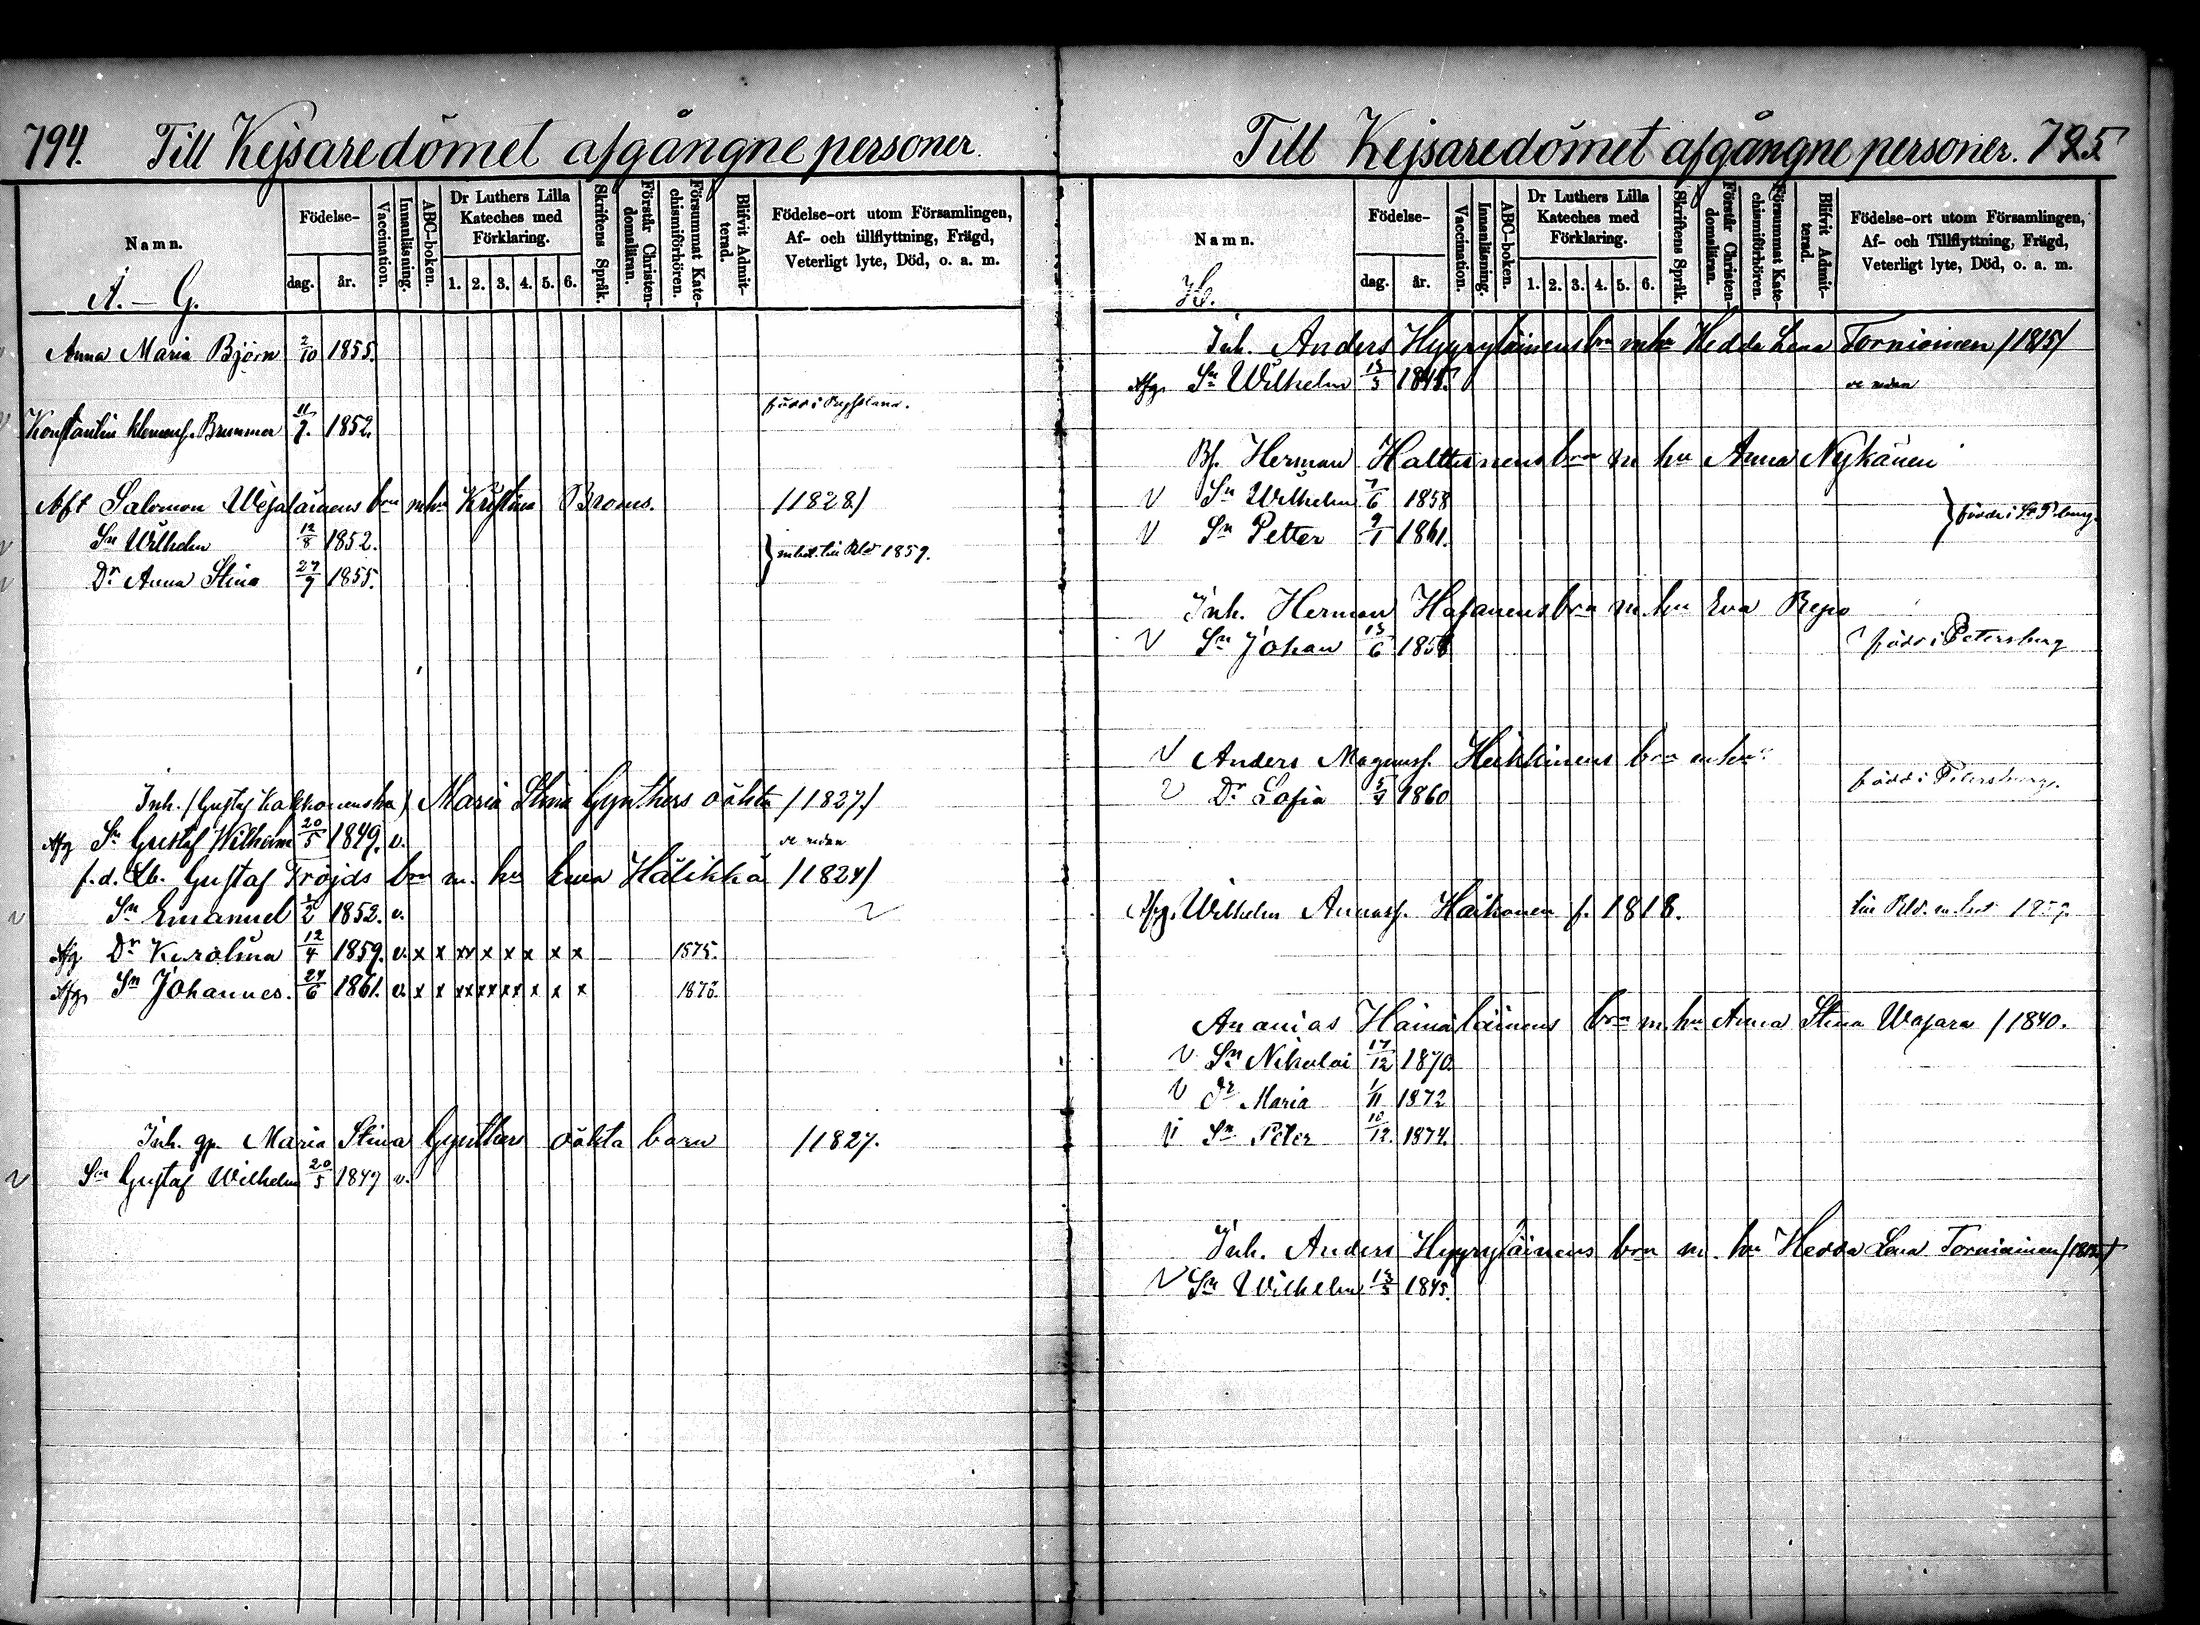 794. Till Kejsaredömet afgångne personer.
Namn.
A. – G.
Födelse-
dag. år.
Vaccination.
Innanläsning.
ABC-boken.
Dr Luthers Lilla Kateches med Förklaring.
1. 2. 3. 4. 5. 6.
Skriftens Språk.
Förstår Christendomsläran.
Försummat Katechismiförhören.
Blifvit Admitterad.
Födelse-ort utom Församlingen,
Af- och tillflyttning, Frägd,
Veterligt lyte, Död, o. a. m.
Anna Maria Björn 2/10 1855.
född i
Konstantin Brummer 11/7. 1852.
Afsk Salomon Wejalainens brn m hu Kristina Broms. /1828/
Sn Wilhelm 12/8 1852.
1859.
Dr Anna Stina 27/9 1855.
Inh. (Gustaf Kakkonenska) Maria Stina Gynthers oäkta /1827/
Afg Sn Gustaf Wilhelm 20/5 1849. v. se nedan
f.d. Gustaf Fröjds brn m. hu Ewa Hälikkä /1824/
v Sn Emanuel 1/2 1852. v.
Afg Dr Karolina 12/4 1859. v. x x xx x x x x x 1875.
Afg Sn Johannes. 24/6 1861. v. x x xx xx xx x x x 1878.
Inh. gp. Maria Stina Gynthers oäkta barn /1827.
v Sn Gustaf Wilhelm 20/5 1849 v.
Till Kejsaredömet afgångne personer. 795
Namn.
H.
Födelse-
dag. år.
Vaccination.
Innanläsning.
ABC-boken.
Dr Luthers Lilla Kateches med Förklaring.
1. 2. 3. 4. 5. 6.
Skriftens Språk.
Förstår Christendomsläran.
Försummat Katechismiförhören.
Blifvit Admitterad.
Födelse-ort utom Församlingen,
Af- och Tillflyttning, Frägd,
Veterligt lyte, Död, o. a. m.
Inh. Anders Hyyryläinens brn m hu Hedda Lena Torniainen /1815/
Afg. Sn Wilhelm 13/3 1845. se nedan
Bf. Herman Halttunens brn m hu Anna Nykänen
v Sn Wilhelm 7/6 1858
född i St Pburg.
v Sn Petter 9/1 1861.
Inh. Herman Hasanens brn m. hu Eva Repo
v Sn Johan 13/6 1858 född i Petersburg
v Anders Magnuss. Heikkinens brn m hu
v Dr Sofia 1860 född i Petersburg.
Afg. Wilhelm Annass. Haikonen f. 1818.
Ananias Hämäläinens brn m. hu Anna Stina Wajara /1840.
v Sn Nikolai 17/12 1870.
v Dr Maria 1/11 1872
v Sn Peter 10/12. 1874.
Inh. Anders Hyyryläinens brn m. hu Hedda Lena Torniainen /1815/
v Sn Wilhelm 13/3 1845.